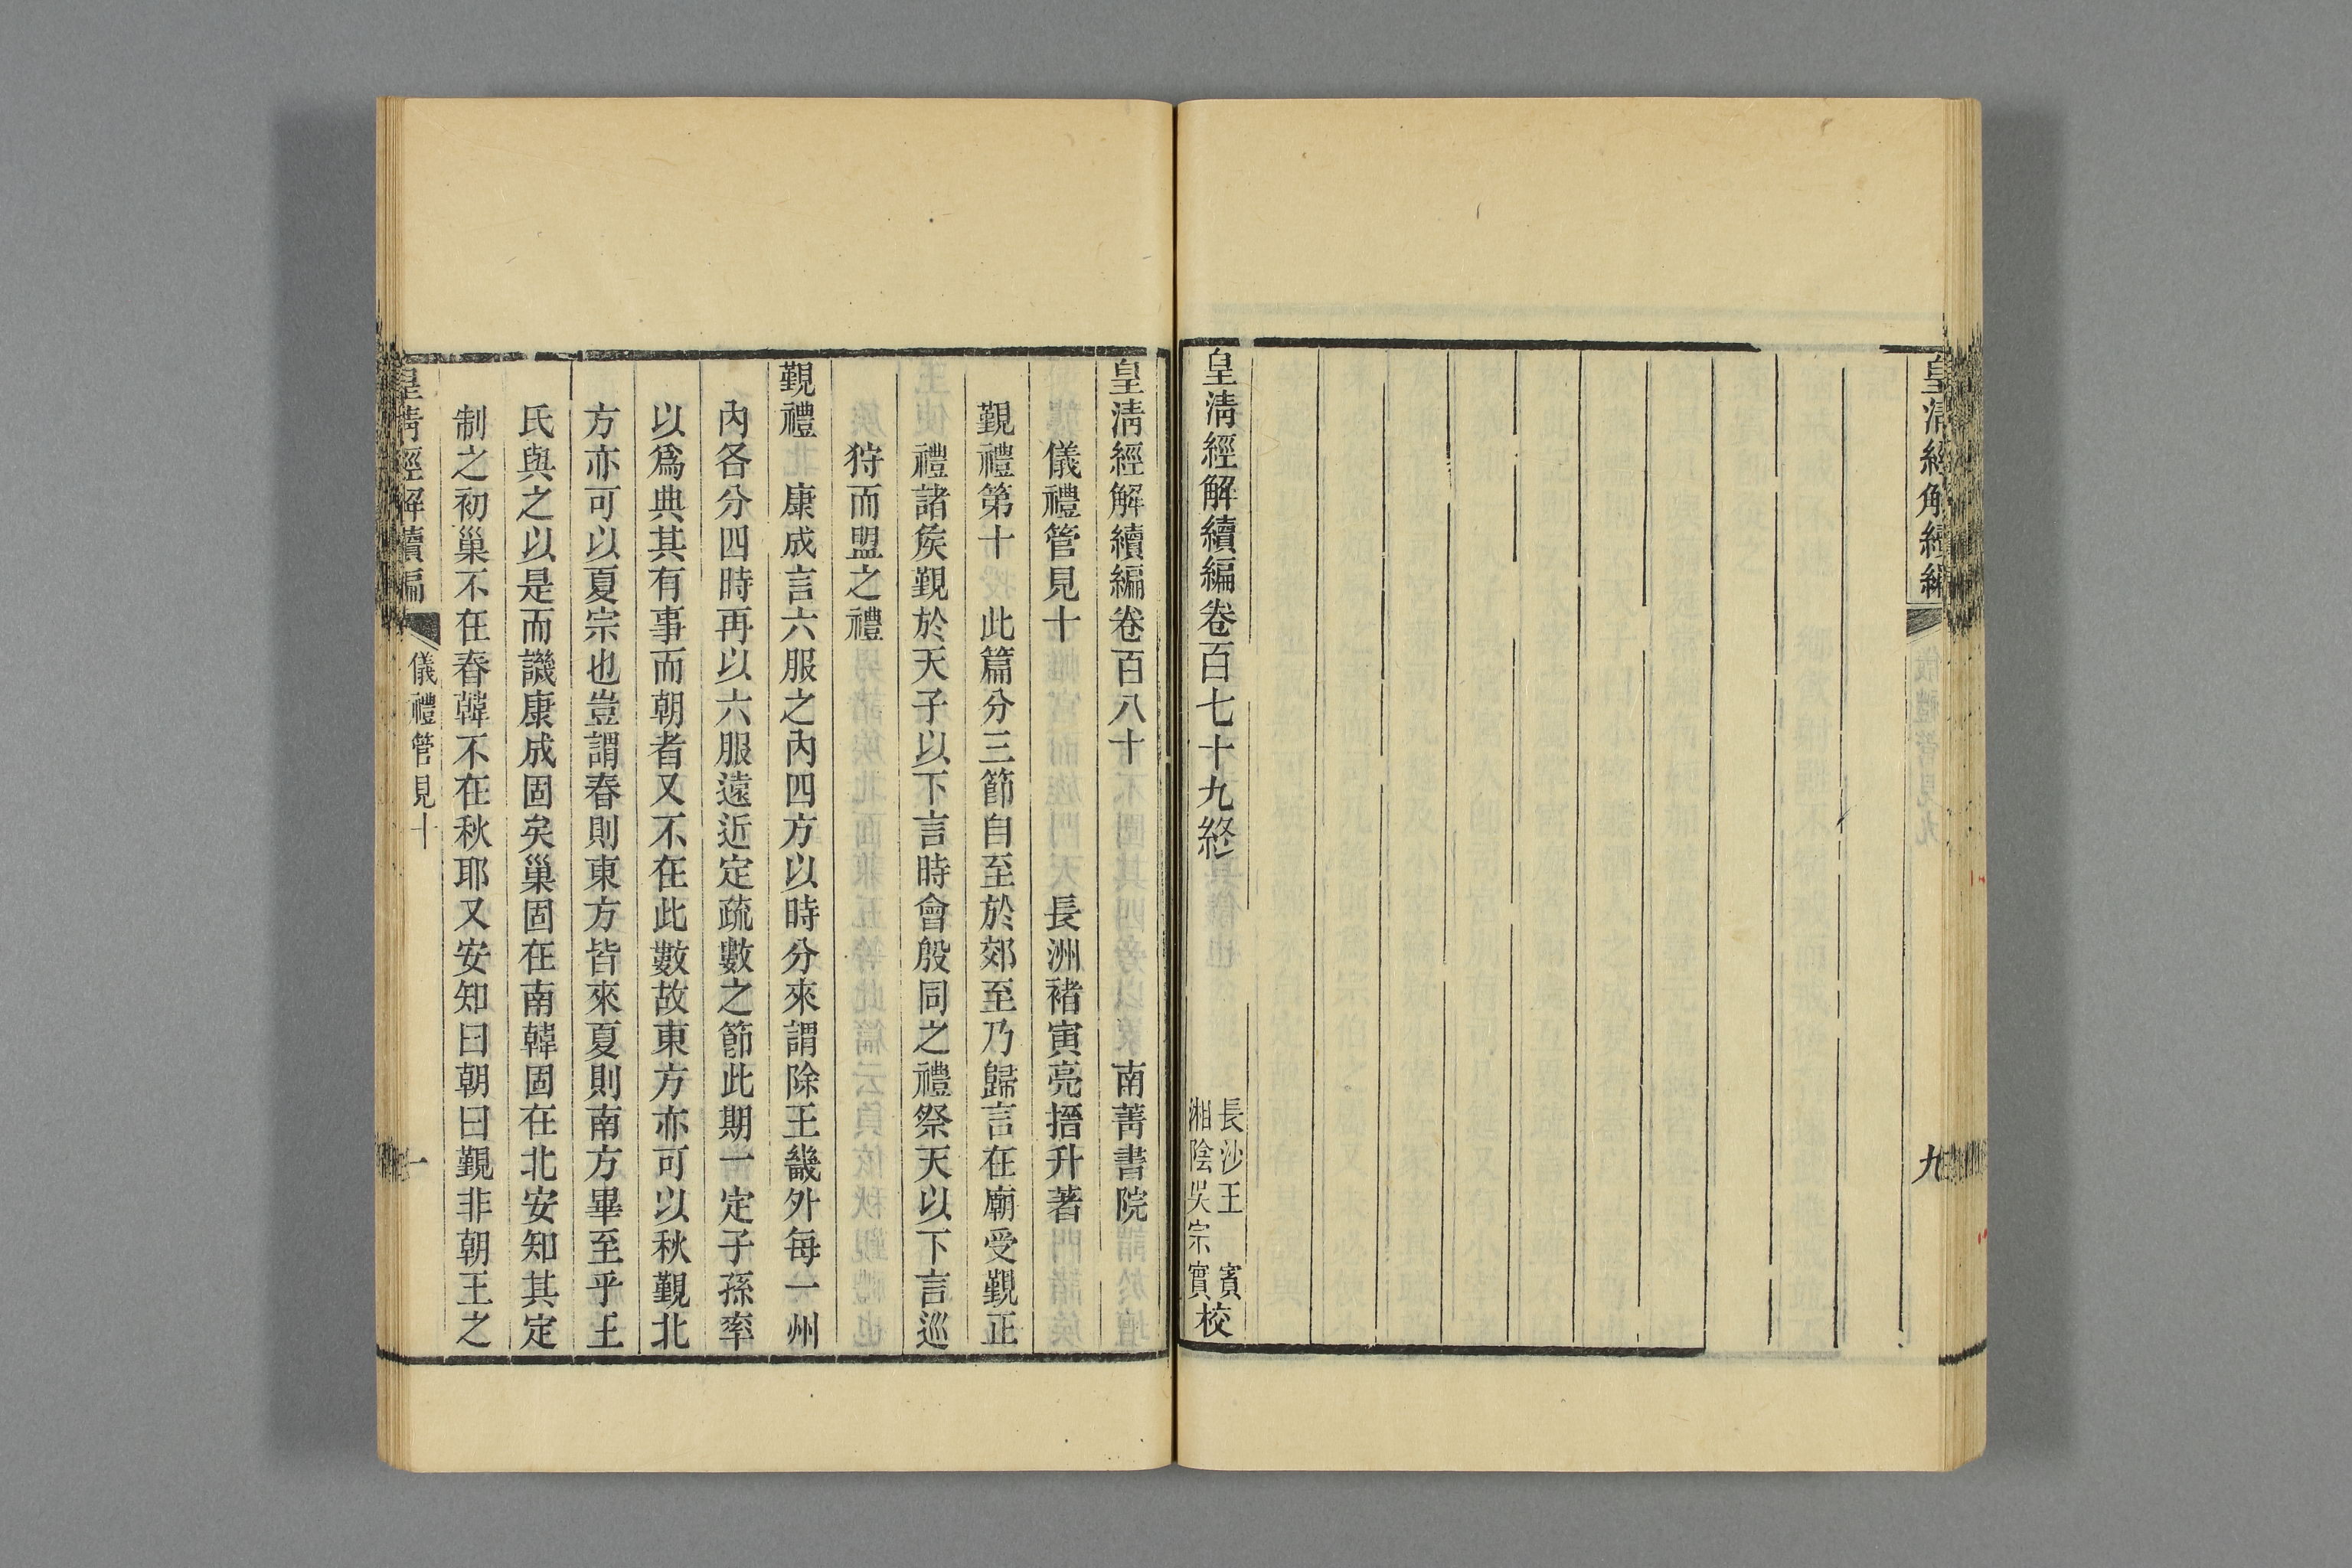 皇清經解續編
九
皇清經解續編卷百七十九終
長沙王賓
湘陰吳宗實
校
皇清經解續編卷百八十
南菁書院
儀禮管見十
長洲褚寅亮搢升著
覲禮第十
此篇分三節自至於郊至乃歸言在廟受覲正
禮諸矦覲於天子以下言時會殷同之禮祭天以下言巡
狩而盟之禮
覲禮
康成言六服之內四方以時分來謂除王畿外每一州
內各分四時再以六服遠近定疏數之節此期一定子孫率
以爲典其有事而朝者又不在此數故東方亦可以秋覲北
方亦可以夏宗也豈謂春則東方皆來夏則南方畢至乎王
氏與之以是而譏康成固矣巢固在南韓固在北安知其定
制之初巢不在春韓不在秋耶又安知曰朝曰覲非朝王之
皇清經解續編
儀禮管見十
一